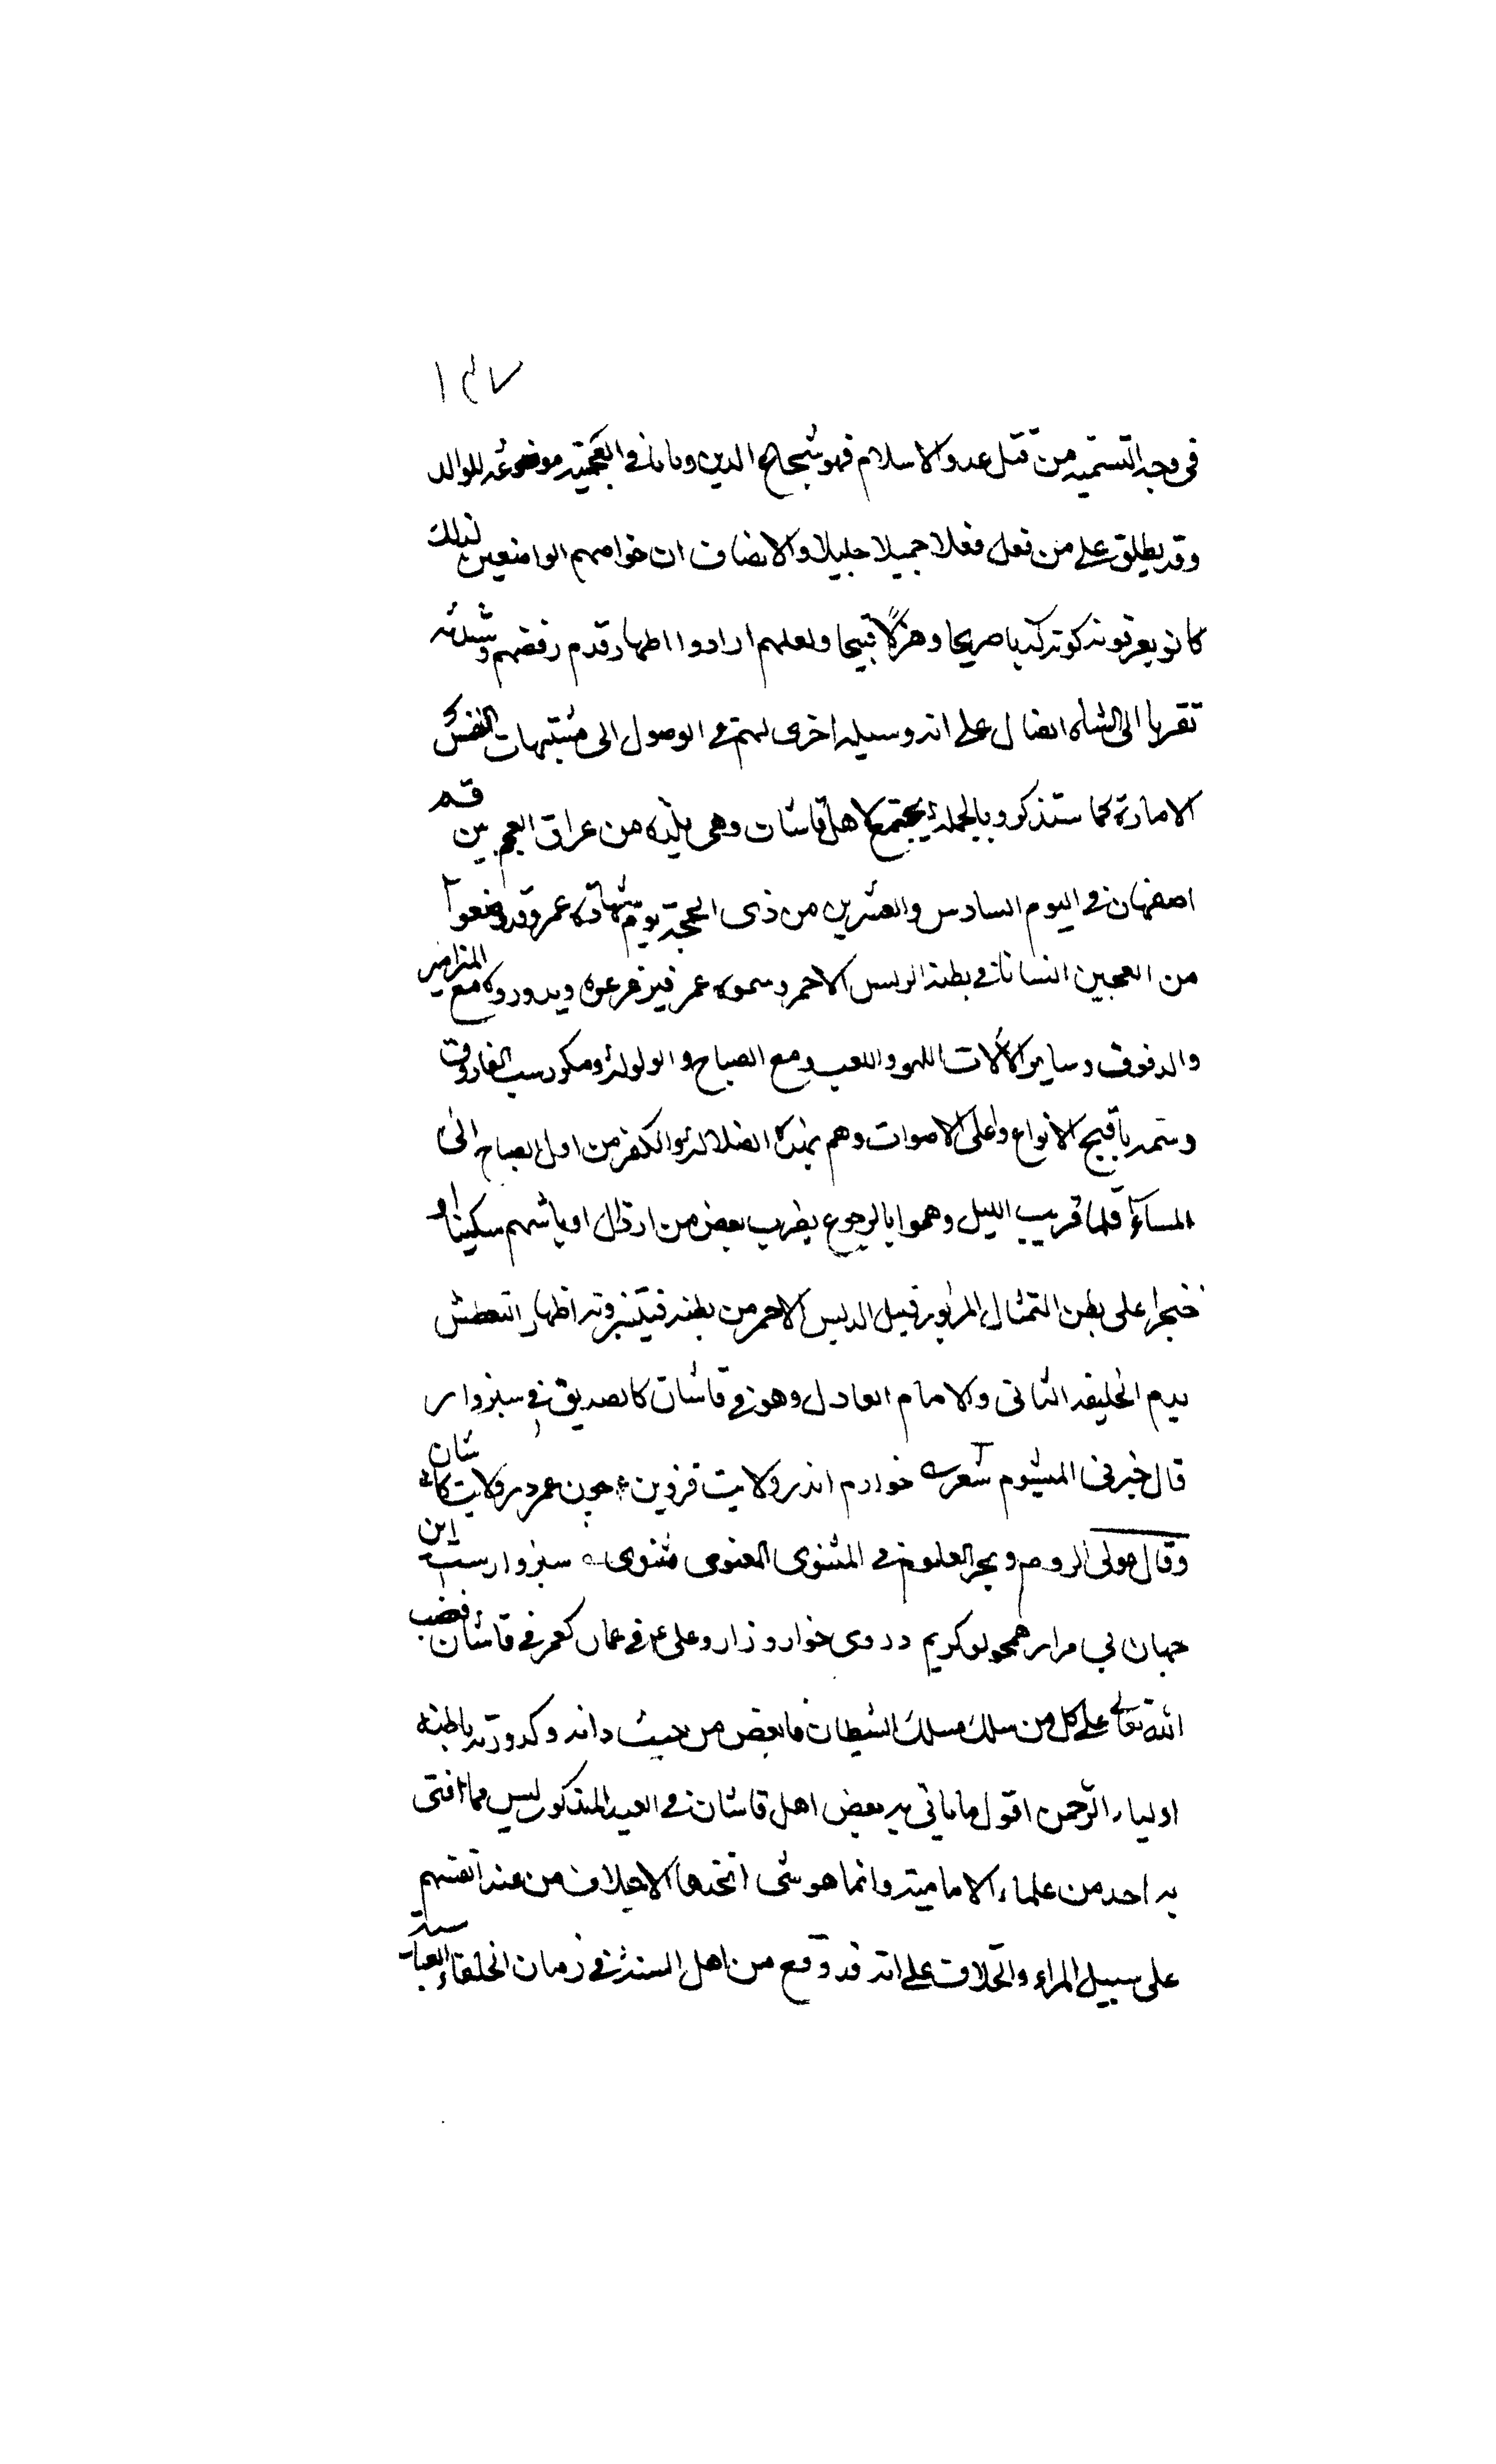 ١٤٧
فى وجه التسميه من قتل عدو الاسلام فهو شجاع الدين وبابا فى العجميته موضوعه للوالد
وقد يطلق على من فعل فعلا جميلا جليلا والانصاف ان خواصهم الواضعين لذلك
كانو يعرفونه كونه كذبا صريحا وهزلا قبيحا ولعلهم ارادوا اظهار قدم رفضهم وشدته
تقربا الى الشاه الضال على انه وسيله اخرى لهم فى الوصول الى مشتهيات النفس
الامارة كما ستذكر وبالجملة يجتمع اهل قاشان وهى بليده من عراق العجم بين قم
اصفهان فى اليوم السادس والعشرين من ذى الحجة يوم شهادة عمر وقد وضعوا
من العجين انسانا فى بطنه الدبس الاحمر وسموه عمر فيزفرعوه ويدوروه مع المزامير
والدفوف وساير الألات اللهو واللعب ومع الصباح والولولة ومكرر سب الفاروق
وشتمه باقبح الانواع واعلى الاصوات وهم بهذه الضلالة والكفر من اول الصباح الى
المساء فلما قريب الليل وهموا بالرجوع يضرب بعض من ارذال اوباشهم سكينا او
خنجرا على بطن التمثال المزبور فيسيل الدبس الاحمر من بطنه فيتبزونه اظهار التعطش
بدم الخليفه الثانى والامام العادل وهو فى قاشان كالصديق فى سبزوار
قال خيرفى المشيوم شعر خوارم اندر ولايت قزوين چون عمر در ولايت كاشان
وقال مولى الروم وبحر العلوم فى المثنوى المعنوى مثنوى سبزوارست اين
جهان بى مدار همچو بوبكريم در وى خوار و زار وعلى فى عمان كعمر فى قاشان فغضب
الله تعالى على كل من سلك مسلك الشيطان فابغض من حيث ذاته وكدورة باطنه
اولياء الرحمن اقول ما ياتى به بعض اهل قاشان فى العيد المذكور ليس مما افتى
به احد من علماء الاماميته وانما هو شى اتخذها الاجلاف من عند انفسهم
على سبيل المراء والخلاف على انه قد وقع من اهل السنة فى زمان الخلفاء العباسية